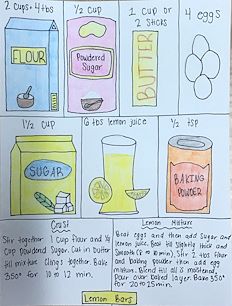 2 cups + 4 tbs
1/2 cup
1 cup or
2 sticks
4 eggs
FLOUR
Powdered
Sugar
BUTTER
1 1/2 cup
6 tbs lemon juice
1/2 tsp
SUGAR
BAKING
POWDER
Crust
Stir together 1 cup flour and 1/2
cup powdered sugar. Cut in butter
till mixture clings together. Bake
350° for 10 to 12 min.
Lemon Mixture
Beat eggs and then add sugar and
lemon juice. Beat till slightly thick and
smooth (8 to 10 min). Stir 2 tbs flour
and baking powder then add egg
mixture. Blend till all is moistened.
Pour over baked layer. Bake 350°
for 20 to 25 min.
Lemon Bars